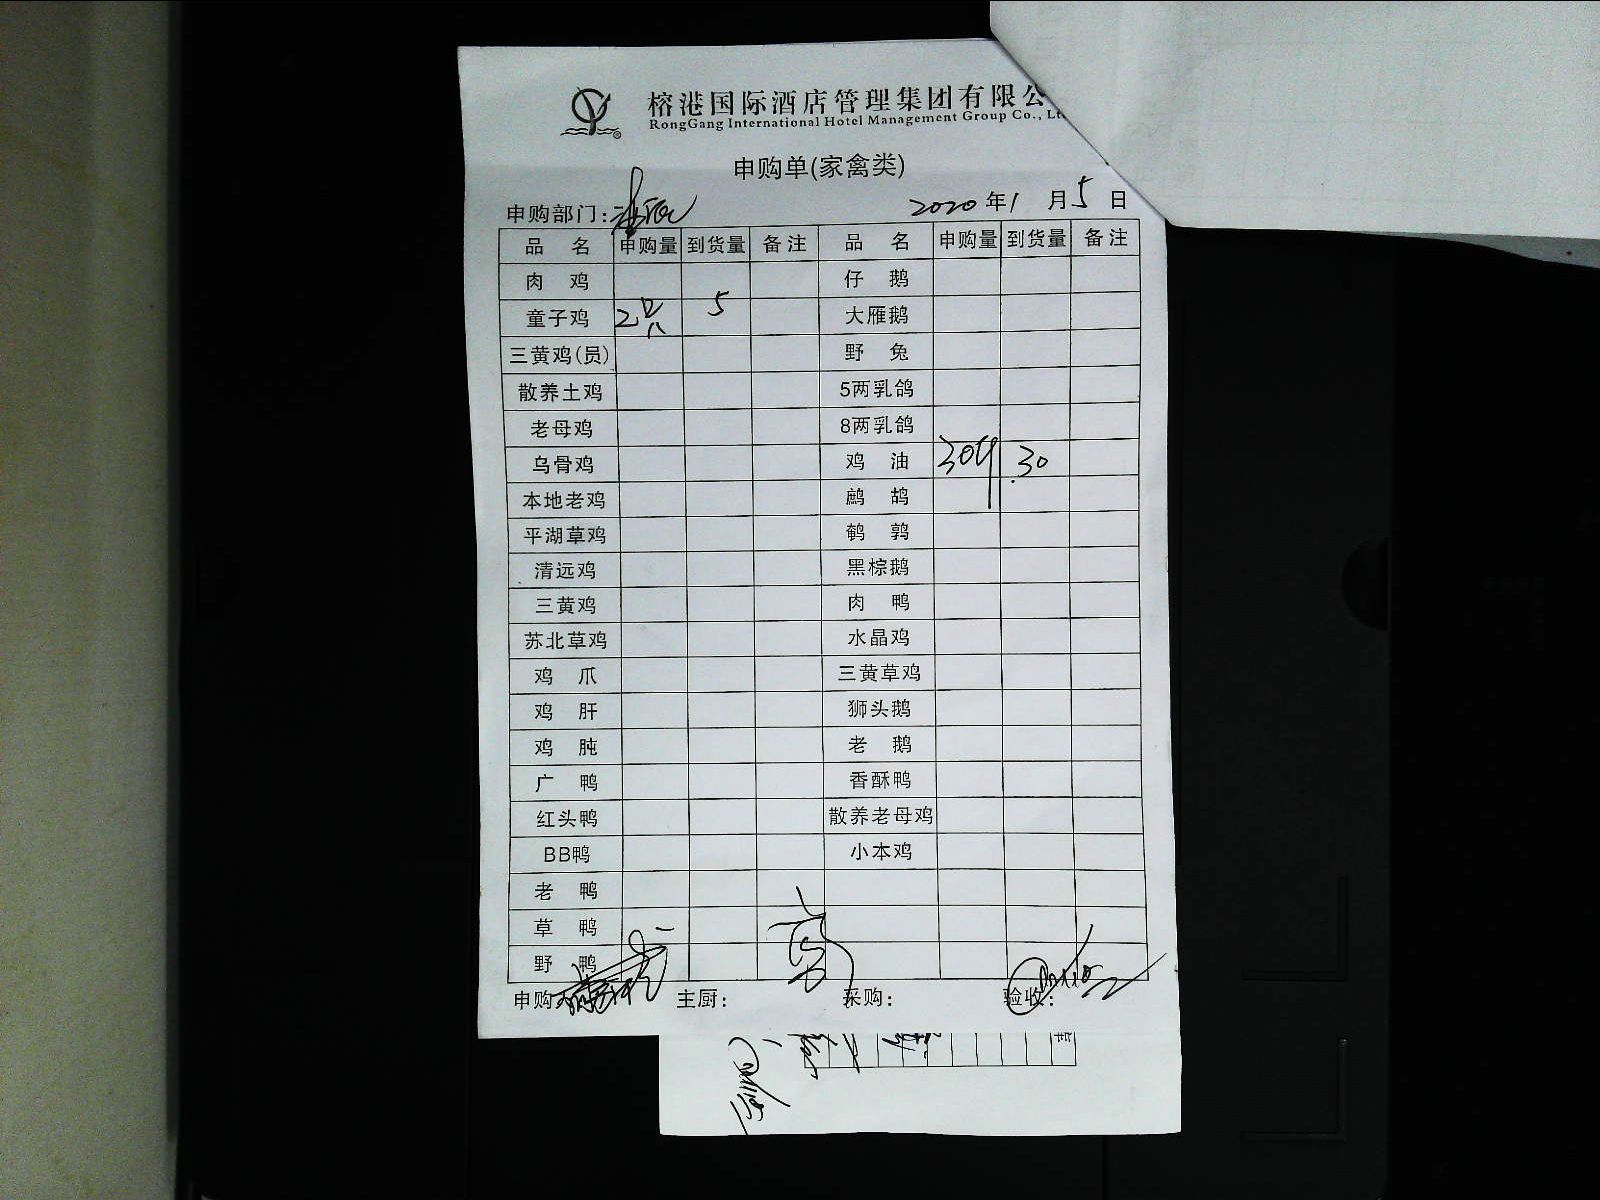 榕港国际酒店管理集团有限公
RongGang International Hotel Management Group Co., Lt
申购单(家禽类)
申购部门: 2020年1月5日
品名 申购量 到货量 备注 品名 申购量 到货量 备注
肉鸡 仔鹅
童子鸡 2只 5 大雁鹅
三黄鸡(员) 野兔
散养土鸡 5两乳鸽
老母鸡 8两乳鸽
乌骨鸡 鸡油 30 30
本地老鸡 鹧鸪
平湖草鸡 鹌鹑
清远鸡 黑棕鹅
三黄鸡 肉鸭
苏北草鸡 水晶鸡
鸡爪 三黄草鸡
鸡肝 狮头鹅
鸡肫 老鹅
广鸭 香酥鸭
红头鸭 散养老母鸡
BB鸭 小本鸡
老鸭
草鸭
野鸭
申购 主厨: 采购: 验收: